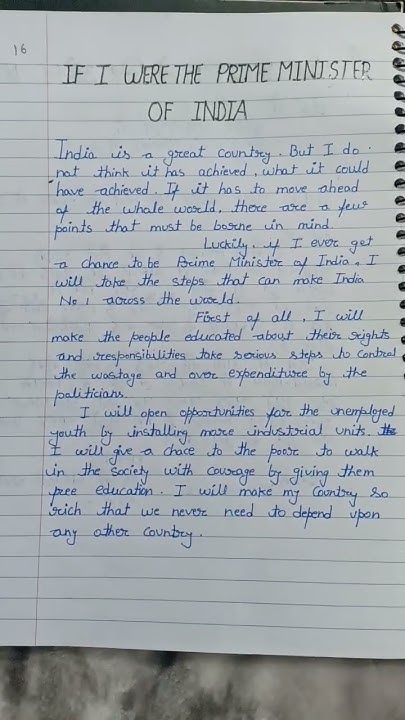 16
IF I WERE THE PRIME MINISTER
OF INDIA
India is a great country. But I do
not think it has achieved, what it could
have achieved. If it has to move ahead
of the whole world, there are a few
points that must be borne in mind.
Luckily, if I ever get
a chance to be Prime Minister of India, I
will take the steps that can make India
No 1 across the world.
First of all, I will
make the people educated about their rights
and responsibilities take serious steps to control
the wastage and over expenditure by the
politicians.
I will open opportunities for the unemployed
youth by installing more industrial units.
I will give a chace to the poor to walk
in the society with courage by giving them
free education. I will make my Country so
rich that we never need to depend upon
any other country.